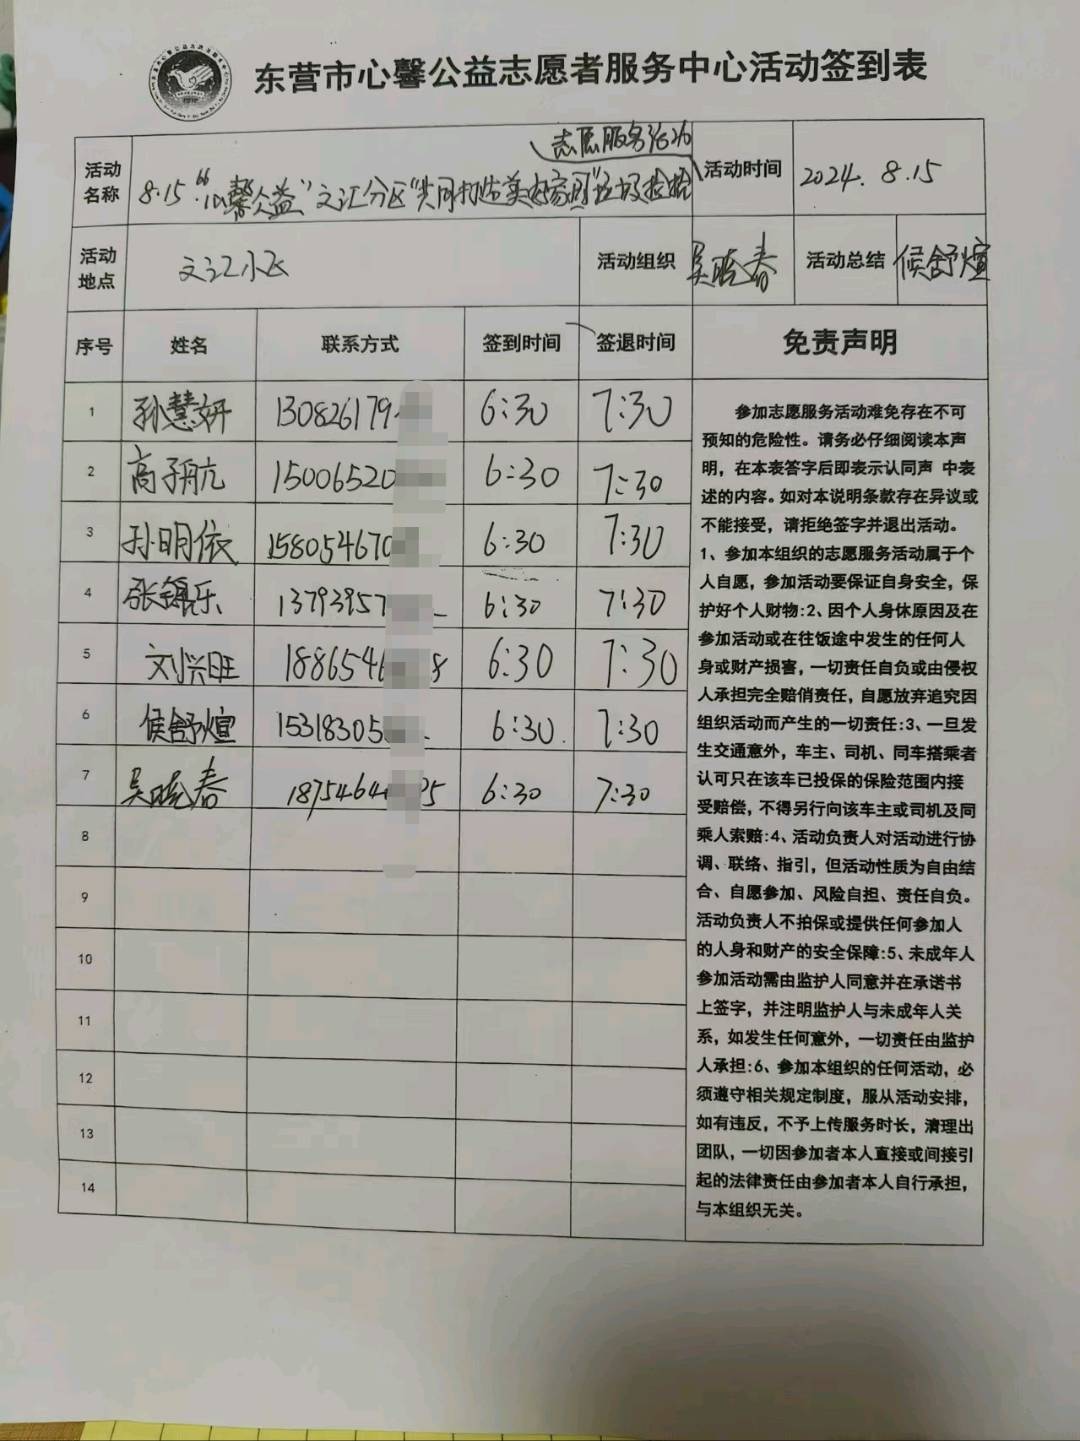 东营市心馨公益志愿者服务中心活动签到表
活动名称
志愿服务活动
8.15“心馨公益”文汇分区“共同打造美好家园”垃圾捡拾
活动时间
2024. 8.15
活动地点
文汇小区
活动组织
吴晓春
活动总结
侯舒煊
序号 姓名 联系方式 签到时间 签退时间 免责声明
1 孙慧妍 130826179 6:30 7:30
2 高子航 15006520 6:30 7:30
3 孙明依 158054670 6:30 7:30
4 张锦乐 13793957 6:30 7:30
5 刘兴旺 1886546 8 6:30 7:30
6 侯舒煊 15318305 6:30. 7:30
7 吴晓春 18754644 95 6:30 7:30
8
9
10
11
12
13
14
参加志愿服务活动难免存在不可
预知的危险性。请务必仔细阅读本声
明，在本表答字后即表示认同声 中表
述的内容。如对本说明条款存在异议或
不能接受，请拒绝签字并退出活动。
1、参加本组织的志愿服务活动属于个
人自愿，参加活动要保证自身安全，保
护好个人财物:2、因个人身休原因及在
参加活动或在往饭途中发生的任何人
身或财产损害，一切责任自负或由侵权
人承担完全赔偿责任，自愿放弃追究因
组织活动而产生的一切责任:3、一旦发
生交通意外，车主、司机、同车搭乘者
认可只在该车已投保的保险范围内接
受赔偿，不得另行向该车主或司机及同
乘人索赔:4、活动负责人对活动进行协
调、联络、指引，但活动性质为自由结
合、自愿参加、风险自担、责任自负。
活动负责人不拍保或提供任何参加人
的人身和财产的安全保障:5、未成年人
参加活动需由监护人同意并在承诺书
上签字，并注明监护人与未成年人关
系，如发生任何意外，一切责任由监护
人承担:6、参加本组织的任何活动，必
须遵守相关规定制度，服从活动安排，
如有违反，不予上传服务时长，清理出
团队，一切因参加者本人直接或间接引
起的法律责任由参加者本人自行承担，
与本组织无关。